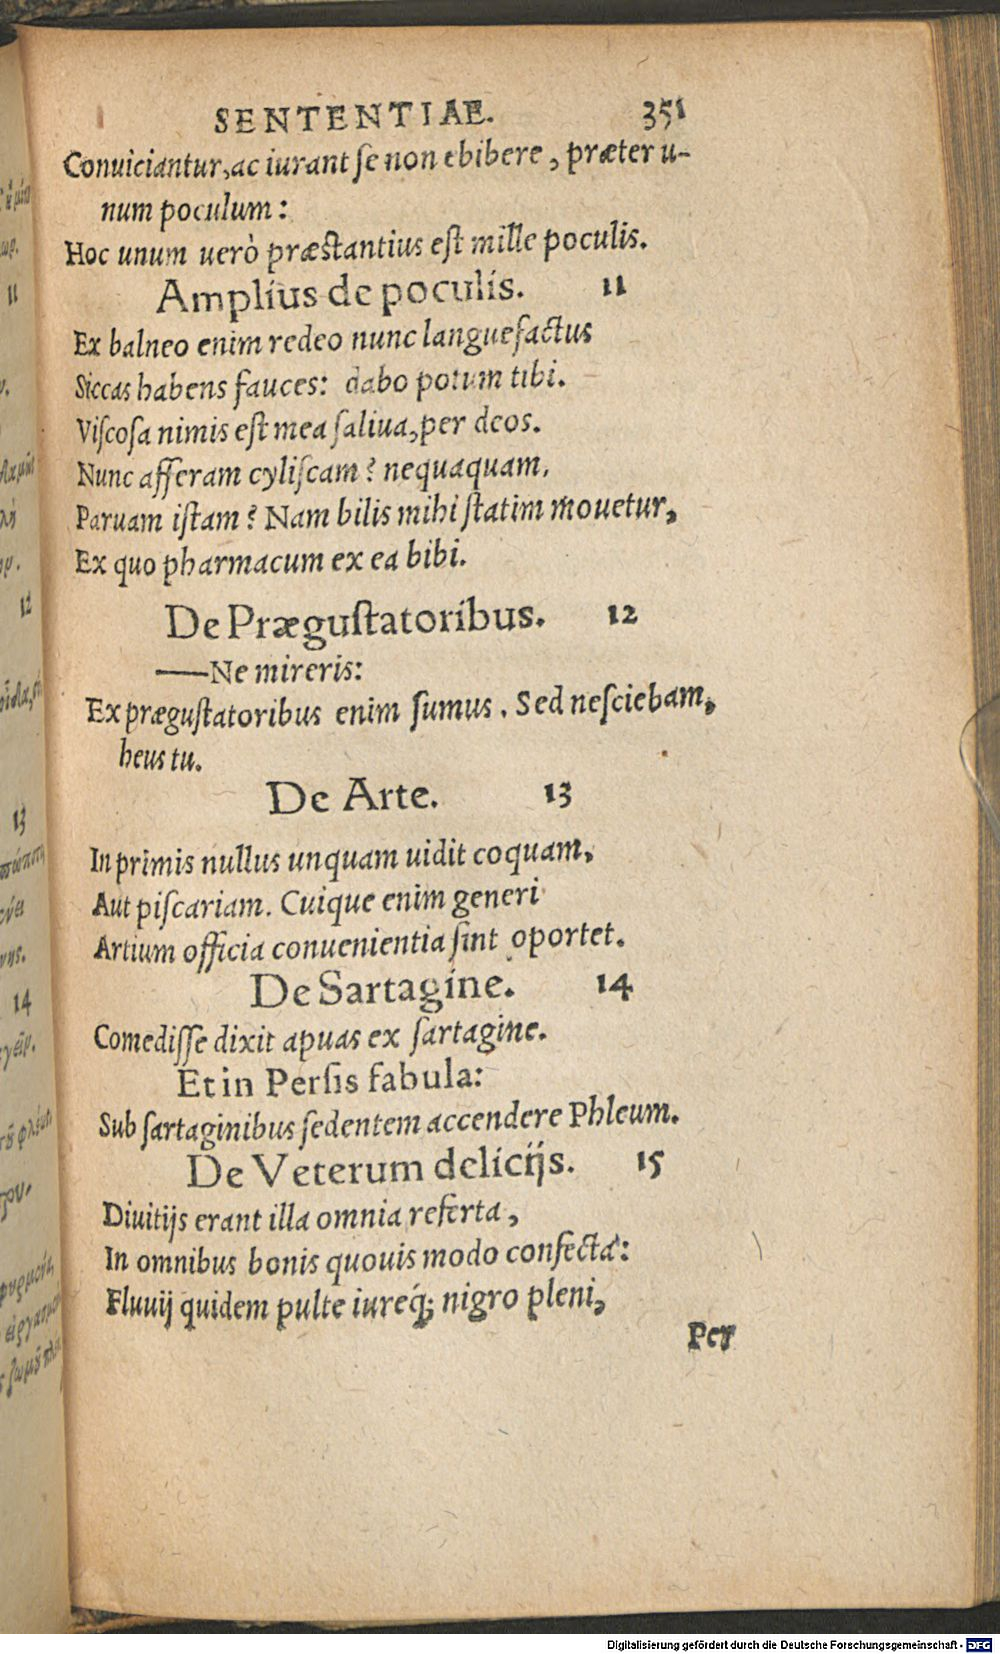 SENTENTIAE. 351
Conuiciantur, ac iurant se non ebibere, præter u-
num poculum:
Hoc unum uerò præstantius est mille poculis.
Amplius de poculis. 11
Ex balneo enim redeo nunc languefactus
Siccas habens fauces: dabo potum tibi.
Viscosa nimis est mea saliua, per deos.
Nunc afferam cyliscam? nequaquam.
Paruam istam? Nam bilis mihi statim mouetur,
Ex quo pharmacum ex ea bibi.
De Prægustatoribus. 12
—Ne mireris:
Ex prægustatoribus enim sumus. Sed nesciebam,
heus tu.
De Arte. 13
In primis nullus unquam uidit coquam,
Aut piscariam. Cuique enim generi
Artium officia conuenientia sint oportet.
De Sartagine. 14
Comedisse dixit apuas ex sartagine.
Et in Persis fabula:
Sub sartaginibus sedentem accendere Phleum.
De Veterum delicijs. 15
Diuitijs erant illa omnia referta,
In omnibus bonis quouis modo confecta:
Fluuij quidem pulte iureq́; nigro pleni,
Per
11
12
13
14
Digitalisierung gefördert durch die Deutsche Forschungsgemeinschaft - DFG